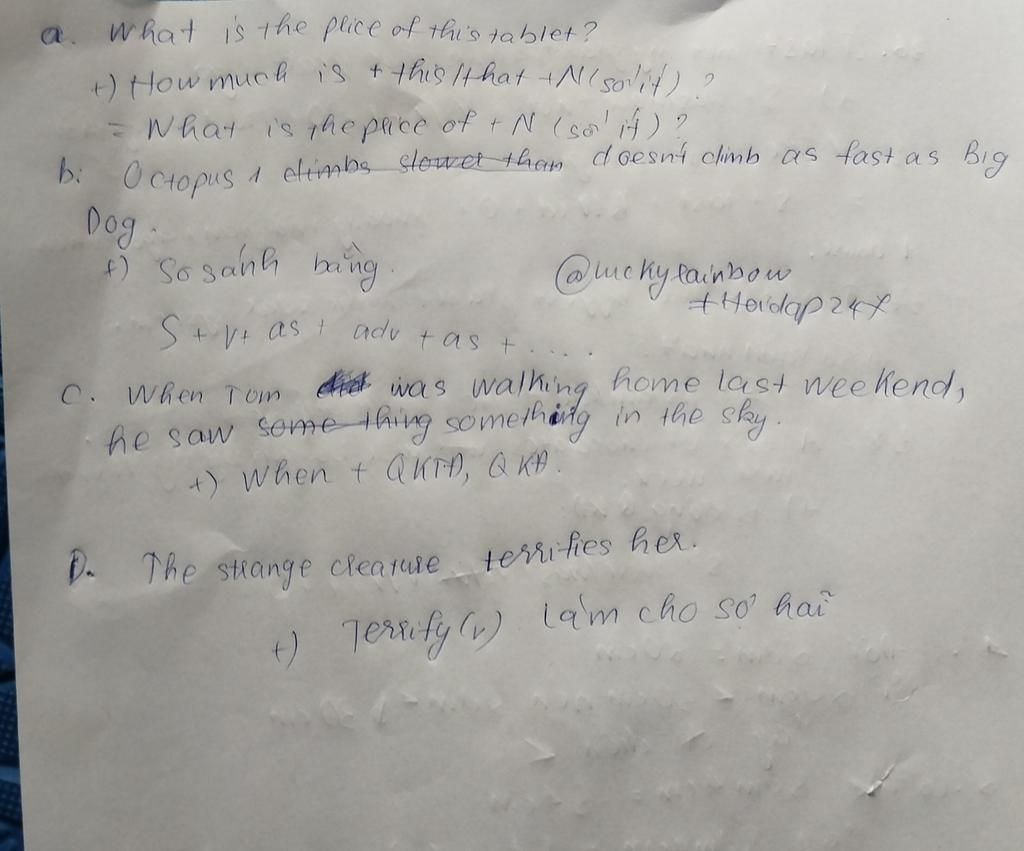 a. What is the price of this tablet?
+) How much is + this/that + N (số ít) ?
= What is the price of + N (số ít) ?
b: Octopus 1 climbs slower than doesn't climb as fast as Big
Dog.
+) So sánh bằng.
@luckyrainbow
#Hoidap247
S + V + as + adv + as + ....
C. When Tom was walking home last weekend,
he saw some thing something in the sky.
+) When + QKTD, QKĐ.
D. The strange creature terrifies her.
+) Terrify (v) làm cho sợ hãi